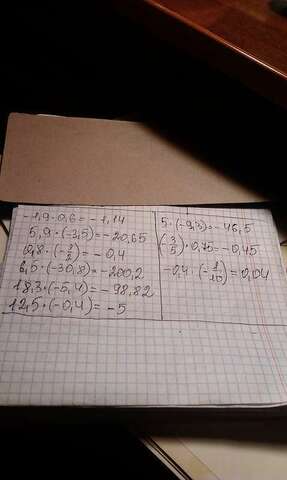 -1,9·0,6=-1,14
5,9·(-3,5)=-20,65
0,8·(-1/2)=-0,4
6,5·(-30,8)=-200,2
18,3·(-5,4)=-98,82
12,5·(-0,4)=-5
5·(-9,3)=-46,5
(-3/5)·0,75=-0,45
-0,4·(-1/10)=0,04